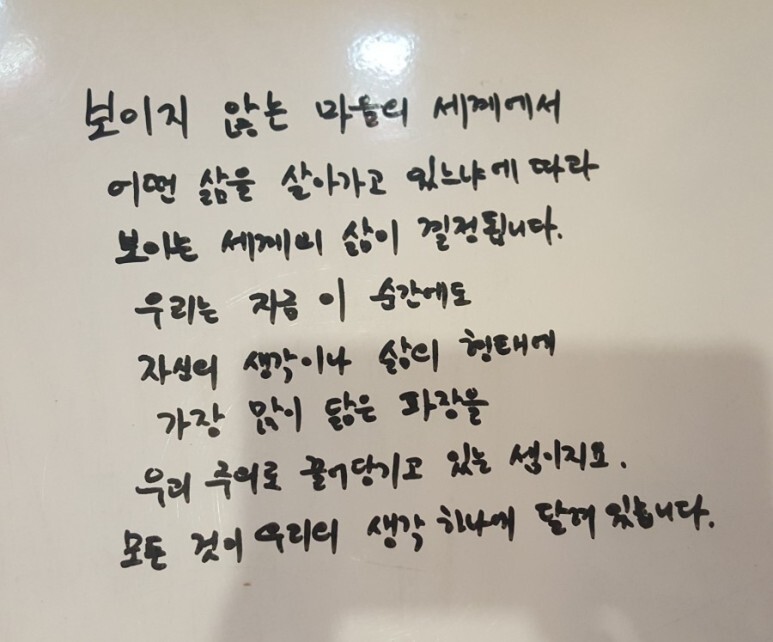 보이지 않는 마음의 세계에서
어떤 삶을 살아가고 있느냐에 따라
보이는 세계의 삶이 결정됩니다.
우리는 지금 이 순간에도
자신의 생각이나 삶의 형태에
가장 많이 닮은 파장을
우리 주위로 끌어당기고 있는 셈이지요.
모든 것이 우리의 생각 하나에 달려 있습니다.